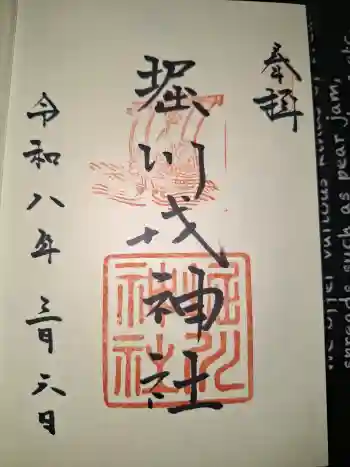 奉拝
堀川戎神社
令和八年 三月六日
堀川
神社
We offer various kinds of
spreads such as pear jam,